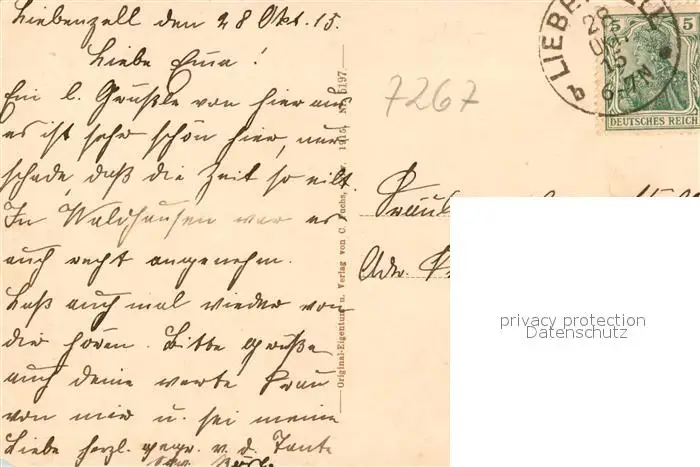 Liebenzell den 28 Okt. 15.
Liebe Emma!
Ein l. Grüßle von hier aus
es ist sehr schön hier, nur
schade, daß die Zeit so eilt.
In Waldhausen war es
auch recht angenehm.
Laß auch mal wieder von
dir hören. Bitte grüße
auch deine werte Frau
von mir u. sei meine
Liebe herzl. gegr. v. d. Tante
7267
Original-Eigentum u. Verlag von C. Fuchs, 1915. Nr. 5197.
LIEBENZELL
28
OK
15
6-7N
b
5
DEUTSCHES REICH
Fräul
Adr.
privacy protection
Datenschutz